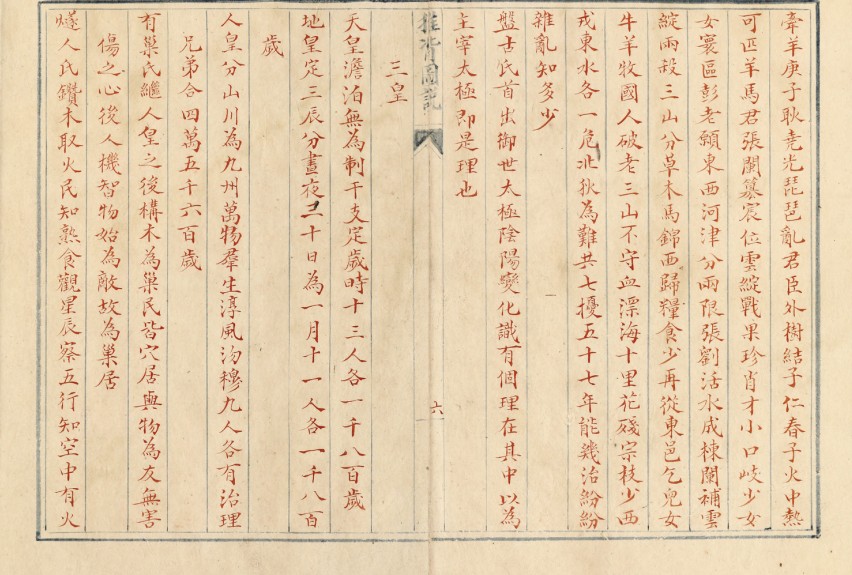 牽羊庚子耿堯光琵琶亂君臣外樹結子仁春子火中熱
可匹羊馬君張閩纂宸位雲綻戰果珍肖才小口岐少女
女寰區彭老顧東西河津分兩限張劉活水成棟閩補雲
綻兩殺三山分草木馬錦西歸糧食少再從東邑乞兒女
牛羊牧國人破老三山不守血漂海十里花殘宗枝少西
戎東水各一危北狄為難共七擾五十七年能幾治紛紛
雜亂知多少
盤古氏首出御世太極陰陽變化識有個理在其中以為
主宰太極即是理也
圖說
六
三皇
天皇澹泊無為制干支定歲時十三人各一千八百歲
地皇定三辰分晝夜三十日為一月十一人各一千八百
歲
人皇分山川為九州萬物羣生淳風沕穆九人各有治理
兄弟合四萬五千六百歲
有巢氏繼人皇之後構木為巢民皆穴居與物為友無害
傷之心後人機智物始為敵故為巢居
燧人氏鑽木取火民知熟食觀星辰察五行知空中有火